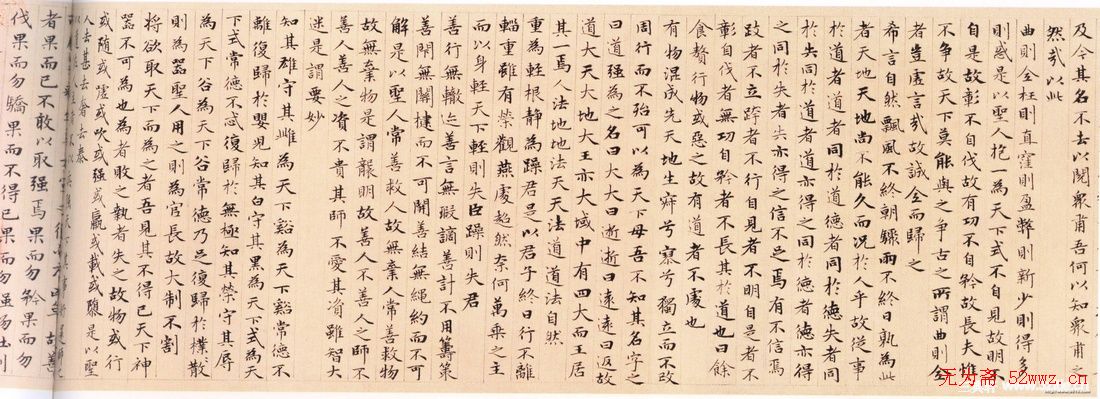 及今其名不去以閱眾甫吾何以知眾甫之
然哉以此
曲則全枉則直窪則盈弊則新少則得多
則惑是以聖人抱一為天下式不自見故明不
自是故彰不自伐故有功不自矜故長夫惟
不爭故天下莫能與之爭古之所謂曲則全
者豈虛言哉故誠全而歸之
希言自然飄風不終朝驟雨不終日孰為此
者天地天地尚不能久而況於人乎故從事
於道者道者同於道德者同於德失者同
於失同於道者道亦得之同於德者德亦得
之同於失者失亦得之信不足焉有不信焉
跂者不立跨者不行自見者不明自是者不
彰自伐者無功自矜者不長其於道也曰餘
食贅行物或惡之故有道者不處也
有物混成先天地生寂兮寥兮獨立而不改
周行而不殆可以為天下母吾不知其名字之
曰道強為之名曰大大曰逝逝曰遠遠曰返故
道大天大地大王亦大域中有四大而王居
其一焉人法地地法天天法道道法自然
重為輕根靜為躁君是以君子終日行不離
輜重雖有榮觀燕處超然奈何萬乘之主
而以身輕天下輕則失臣躁則失君
善行無轍迹善言無瑕謫善計不用籌策
善閉無關楗而不可開善結無繩約而不可
解是以聖人常善救人故無棄人常善救物
故無棄物是謂襲明故善人不善人之師不
善人善人之資不貴其師不愛其資雖智大
迷是謂要妙
知其雄守其雌為天下谿為天下谿常德不
離復歸於嬰兒知其白守其黑為天下式為天
下式常德不忒復歸於無極知其榮守其辱
為天下谷為天下谷常德乃足復歸於樸樸散
則為器聖人用之則為官長故大制不割
將欲取天下而為之者吾見其不得已天下神
器不可為也為者敗之執者失之故物或行
或隨或噓或吹或強或羸或載或隳是以聖
人去甚去奢去泰
者果而已不敢以取强焉果而勿矜果而勿
伐果而勿驕果而不得已果而勿强
无为斋.52wwz.cn